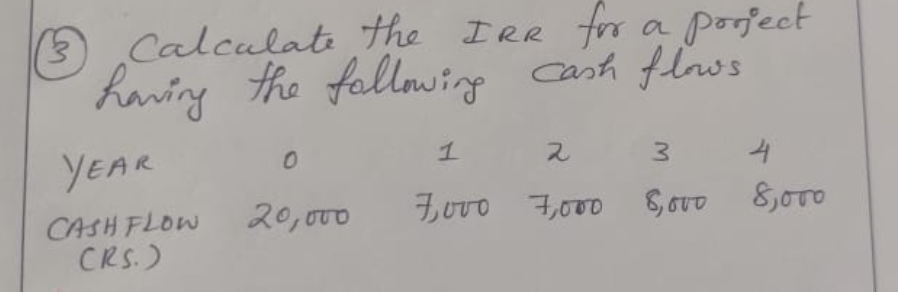 ③ Calculate the IRR for a project
having the following cash flows
YEAR 0 1 2 3 4
CASH FLOW 20,000 7,000 7,000 8,000 8,000
(RS.)